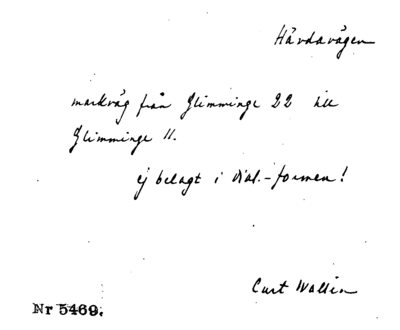 Hävdavägen
markväg från Glimminge 22 till
Glimminge 11.
ej belagt i dial.-formen!
Curt Wallin
Nr 5469.